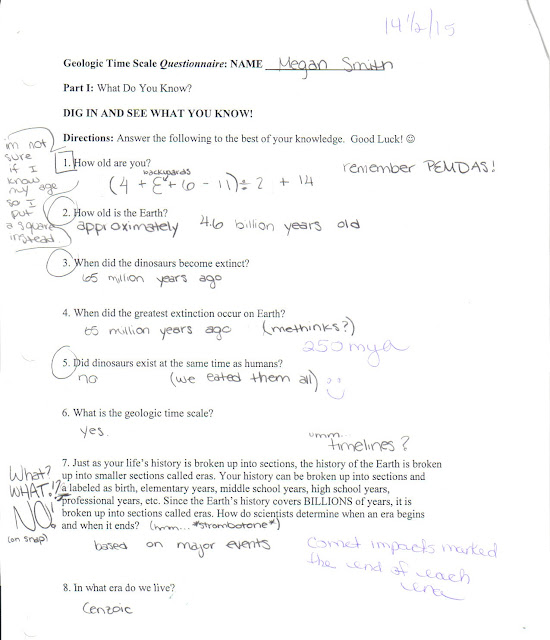 14 1/2/15
Geologic Time Scale Questionnaire: NAME Megan Smith
Part I: What Do You Know?
DIG IN AND SEE WHAT YOU KNOW!
Directions: Answer the following to the best of your knowledge. Good Luck! ☺
im not
sure
if I
know
my age
so I
put
a square
instead.
1. How old are you?
remember PEMDAS!
backwards
(4 + Ɛ + 6 - 11) ÷ 2 + 14
2. How old is the Earth?
approximately 4.6 billion years old
3. When did the dinosaurs become extinct?
65 million years ago
4. When did the greatest extinction occur on Earth?
65 million years ago (methinks?)
250 mya
5. Did dinosaurs exist at the same time as humans?
no (we eated them all)
6. What is the geologic time scale?
yes. umm...
timelines?
7. Just as your life's history is broken up into sections, the history of the Earth is broken
up into smaller sections called eras. Your history can be broken up into sections and
a labeled as birth, elementary years, middle school years, high school years,
professional years, etc. Since the Earth's history covers BILLIONS of years, it is
broken up into sections called eras. How do scientists determine when an era begins
and when it ends? (hmm... *strombotone*)
What?
WHAT!?
NO!
(oh snap)
based on major events
comet impacts marked
the end of each
era
8. In what era do we live?
Cenzoic